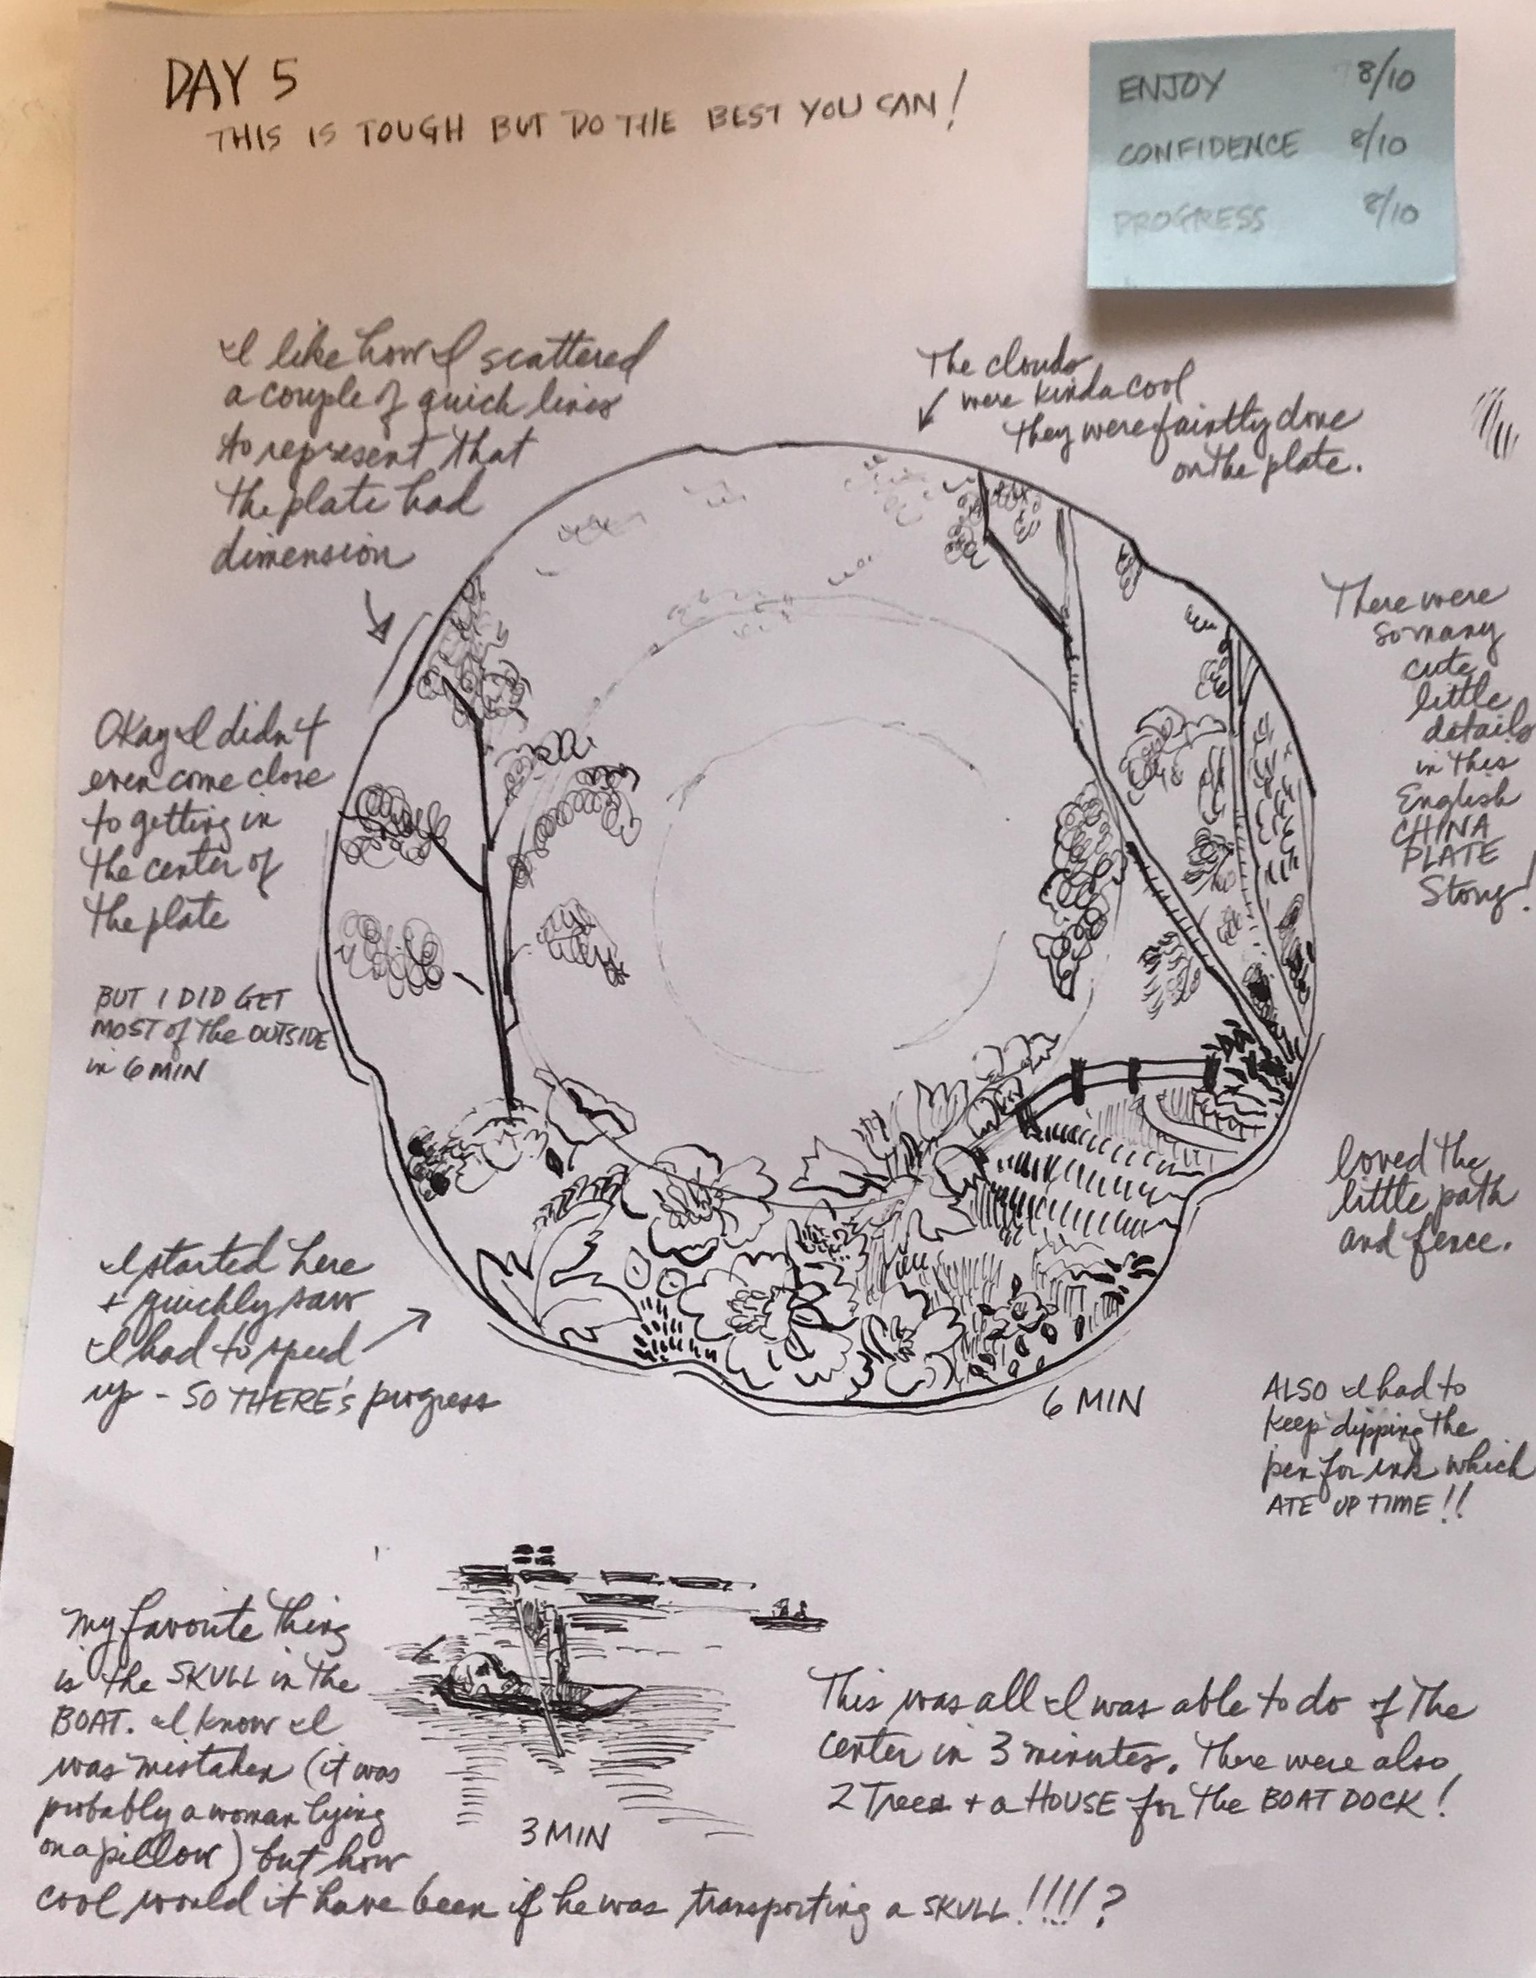 DAY 5
THIS IS TOUGH BUT DO THE BEST YOU CAN!
ENJOY 8/10
CONFIDENCE 8/10
PROGRESS 8/10
I like how I scattered
a couple of quick lines
to represent that
the plate had
dimension
The clouds
were kinda cool
they were faintly done
on the plate.
There were
so many
cute
little
details
in this
English
CHINA
PLATE
Story!
Okay I didn't
even come close
to getting in
the center of
the plate
BUT I DID GET
MOST of the OUTSIDE
in 6 MIN
loved the
little path
and fence.
I started here
+ quickly saw
I had to speed
up - SO THERE'S progress
6 MIN
ALSO I had to
keep dipping the
pen for ink which
ATE UP TIME!!
My favorite thing
is the SKULL in the
BOAT. I know I
was mistaken (it was
probably a woman lying
on a pillow) but how
cool would it have been if he was transporting a SKULL!!!!?
3 MIN
This was all I was able to do of the
center in 3 minutes. There were also
2 Trees + a HOUSE for the BOAT DOCK!